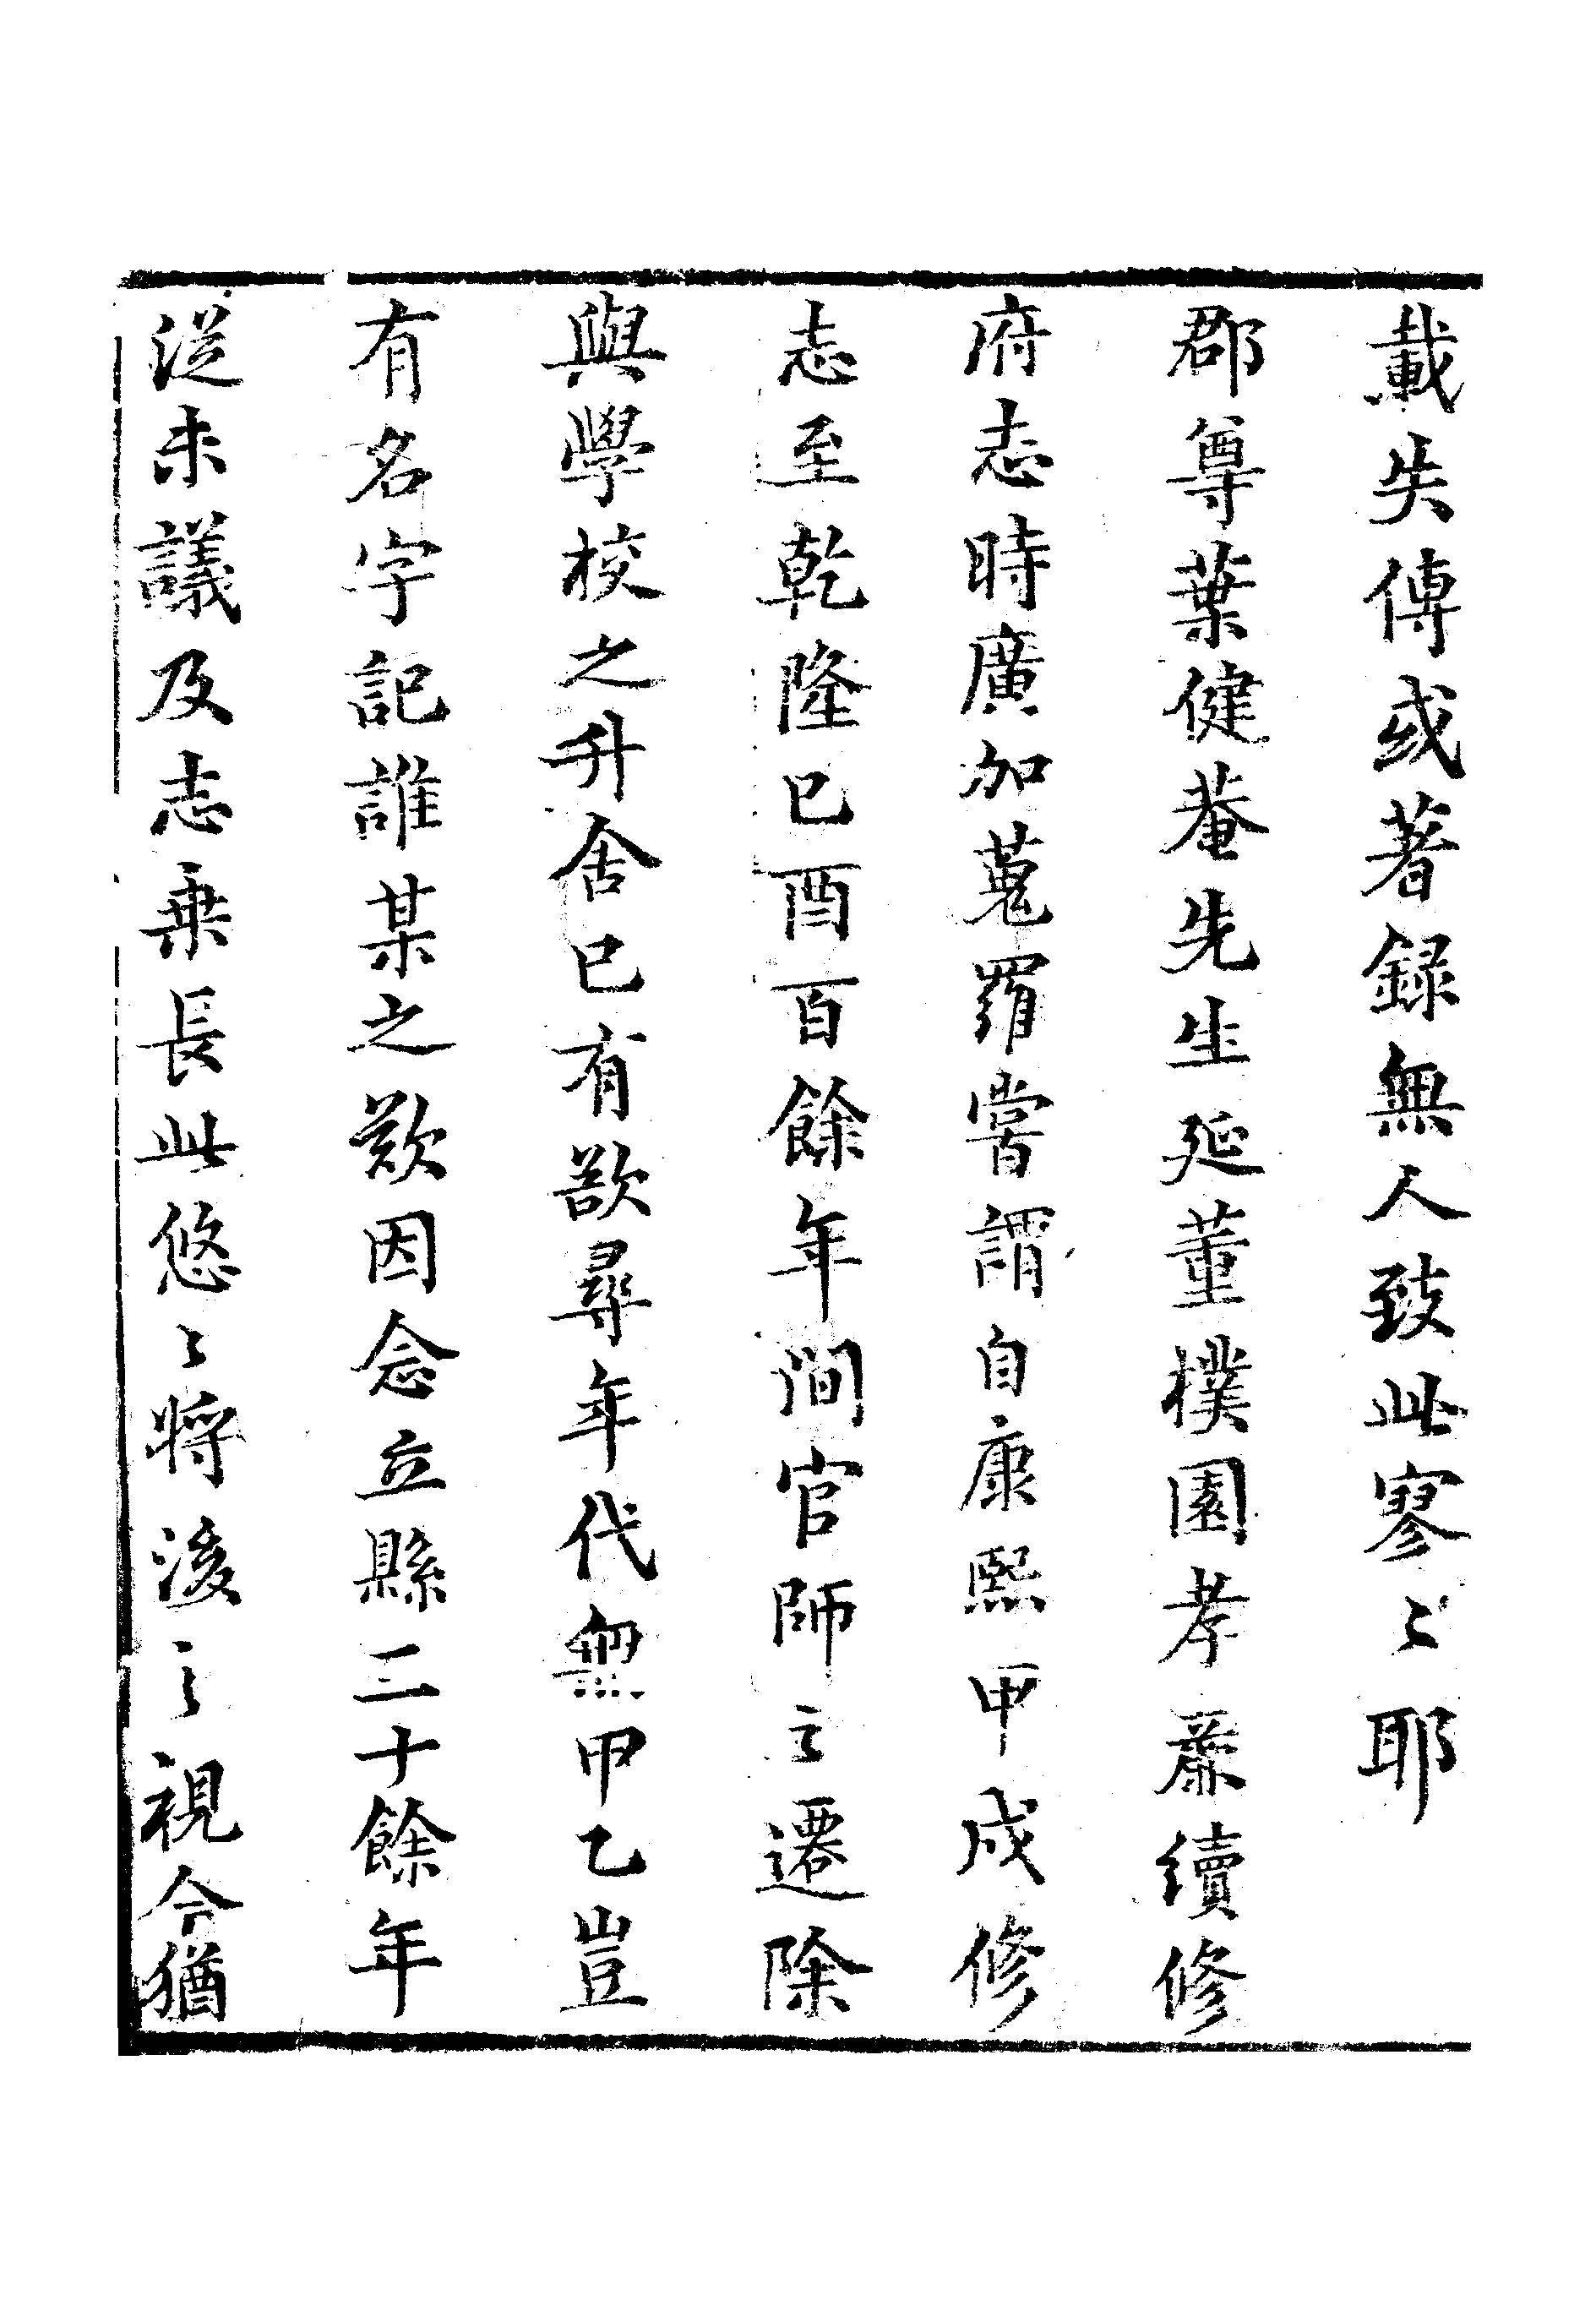 載失傳或著録無人致此寥〻耶
郡尊葉健菴先生延董樸園孝廉續修
府志時廣加蒐羅嘗謂自康熙甲戍修
志至乾隆已酉百餘年間官師之遷除
與學校之升舍已有欲尋年代無甲乙豈
有名字記誰某之歎因念立縣三十餘年
從未議及志乘長此悠〻將後之視今猶